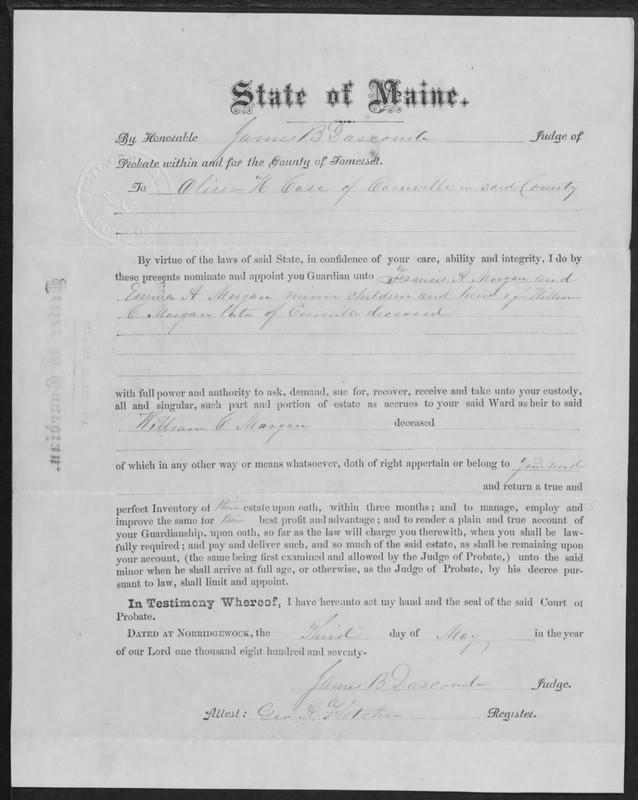 State of Maine.
By Honorable James B Dascomb Judge of
Probate within and for the County of Somerset.
To H Case of Cornville in said County
By virtue of the laws of said State, in confidence of your care, ability and integrity, I do by
these presents nominate and appoint you Guardian unto Francis A Morgan and
A Morgan minor children and heirs of William
C Morgan late of Cornville deceased
with full power and authority to ask, demand, sue for, recover, receive and take unto your custody,
all and singular, such part and portion of estate as accrues to your said Ward as heir to said
William C Morgan deceased
of which in any other way or means whatsoever, doth of right appertain or belong to your ward
and return a true and
perfect Inventory of their estate upon oath, within three months; and to manage, employ and
improve the same for their best profit and advantage; and to render a plain and true account of
your Guardianship, upon oath, so far as the law will charge you therewith, when you shall be law-
fully required; and pay and deliver such, and so much of the said estate, as shall be remaining upon
your account, (the same being first examined and allowed by the Judge of Probate,) unto the said
minor when he shall arrive at full age, or otherwise, as the Judge of Probate, by his decree pur-
suant to law, shall limit and appoint.
In Testimony Whereof, I have hereunto set my hand and the seal of the said Court of
Probate.
DATED AT NORRIDGEWOCK, the Third day of May in the year
of our Lord one thousand eight hundred and seventy-
James B Dascomb Judge.
Attest: Geo A Fletcher Register.